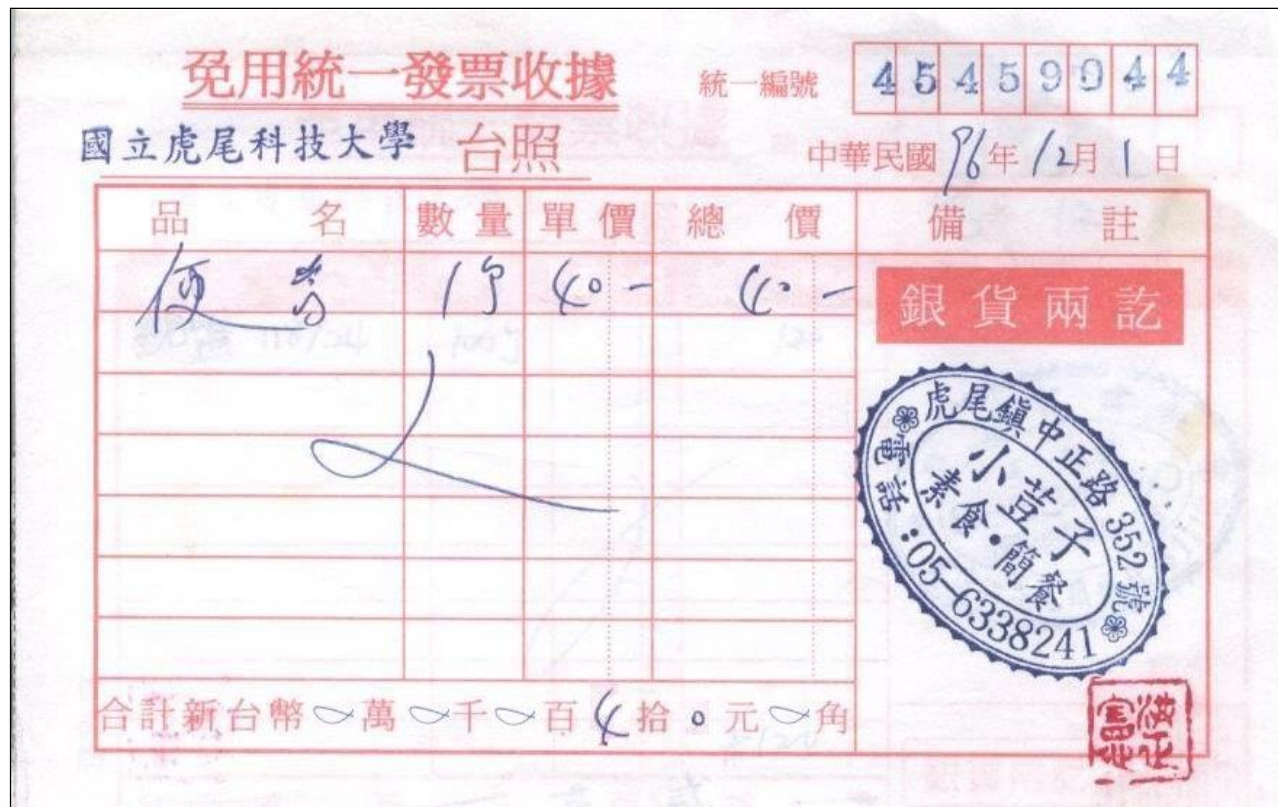 免用統一發票收據 統一編號 45459944
國立虎尾科技大學 台照 中華民國 96年 12月 1日
品名 數量 單價 總價 備註
便當 1個 40- 40-
銀貨兩訖
虎尾鎮中正路352號
小荳子
素食•簡餐
電話:05-6338241
合計新台幣 0萬 0千 0百 4拾 0元 0角